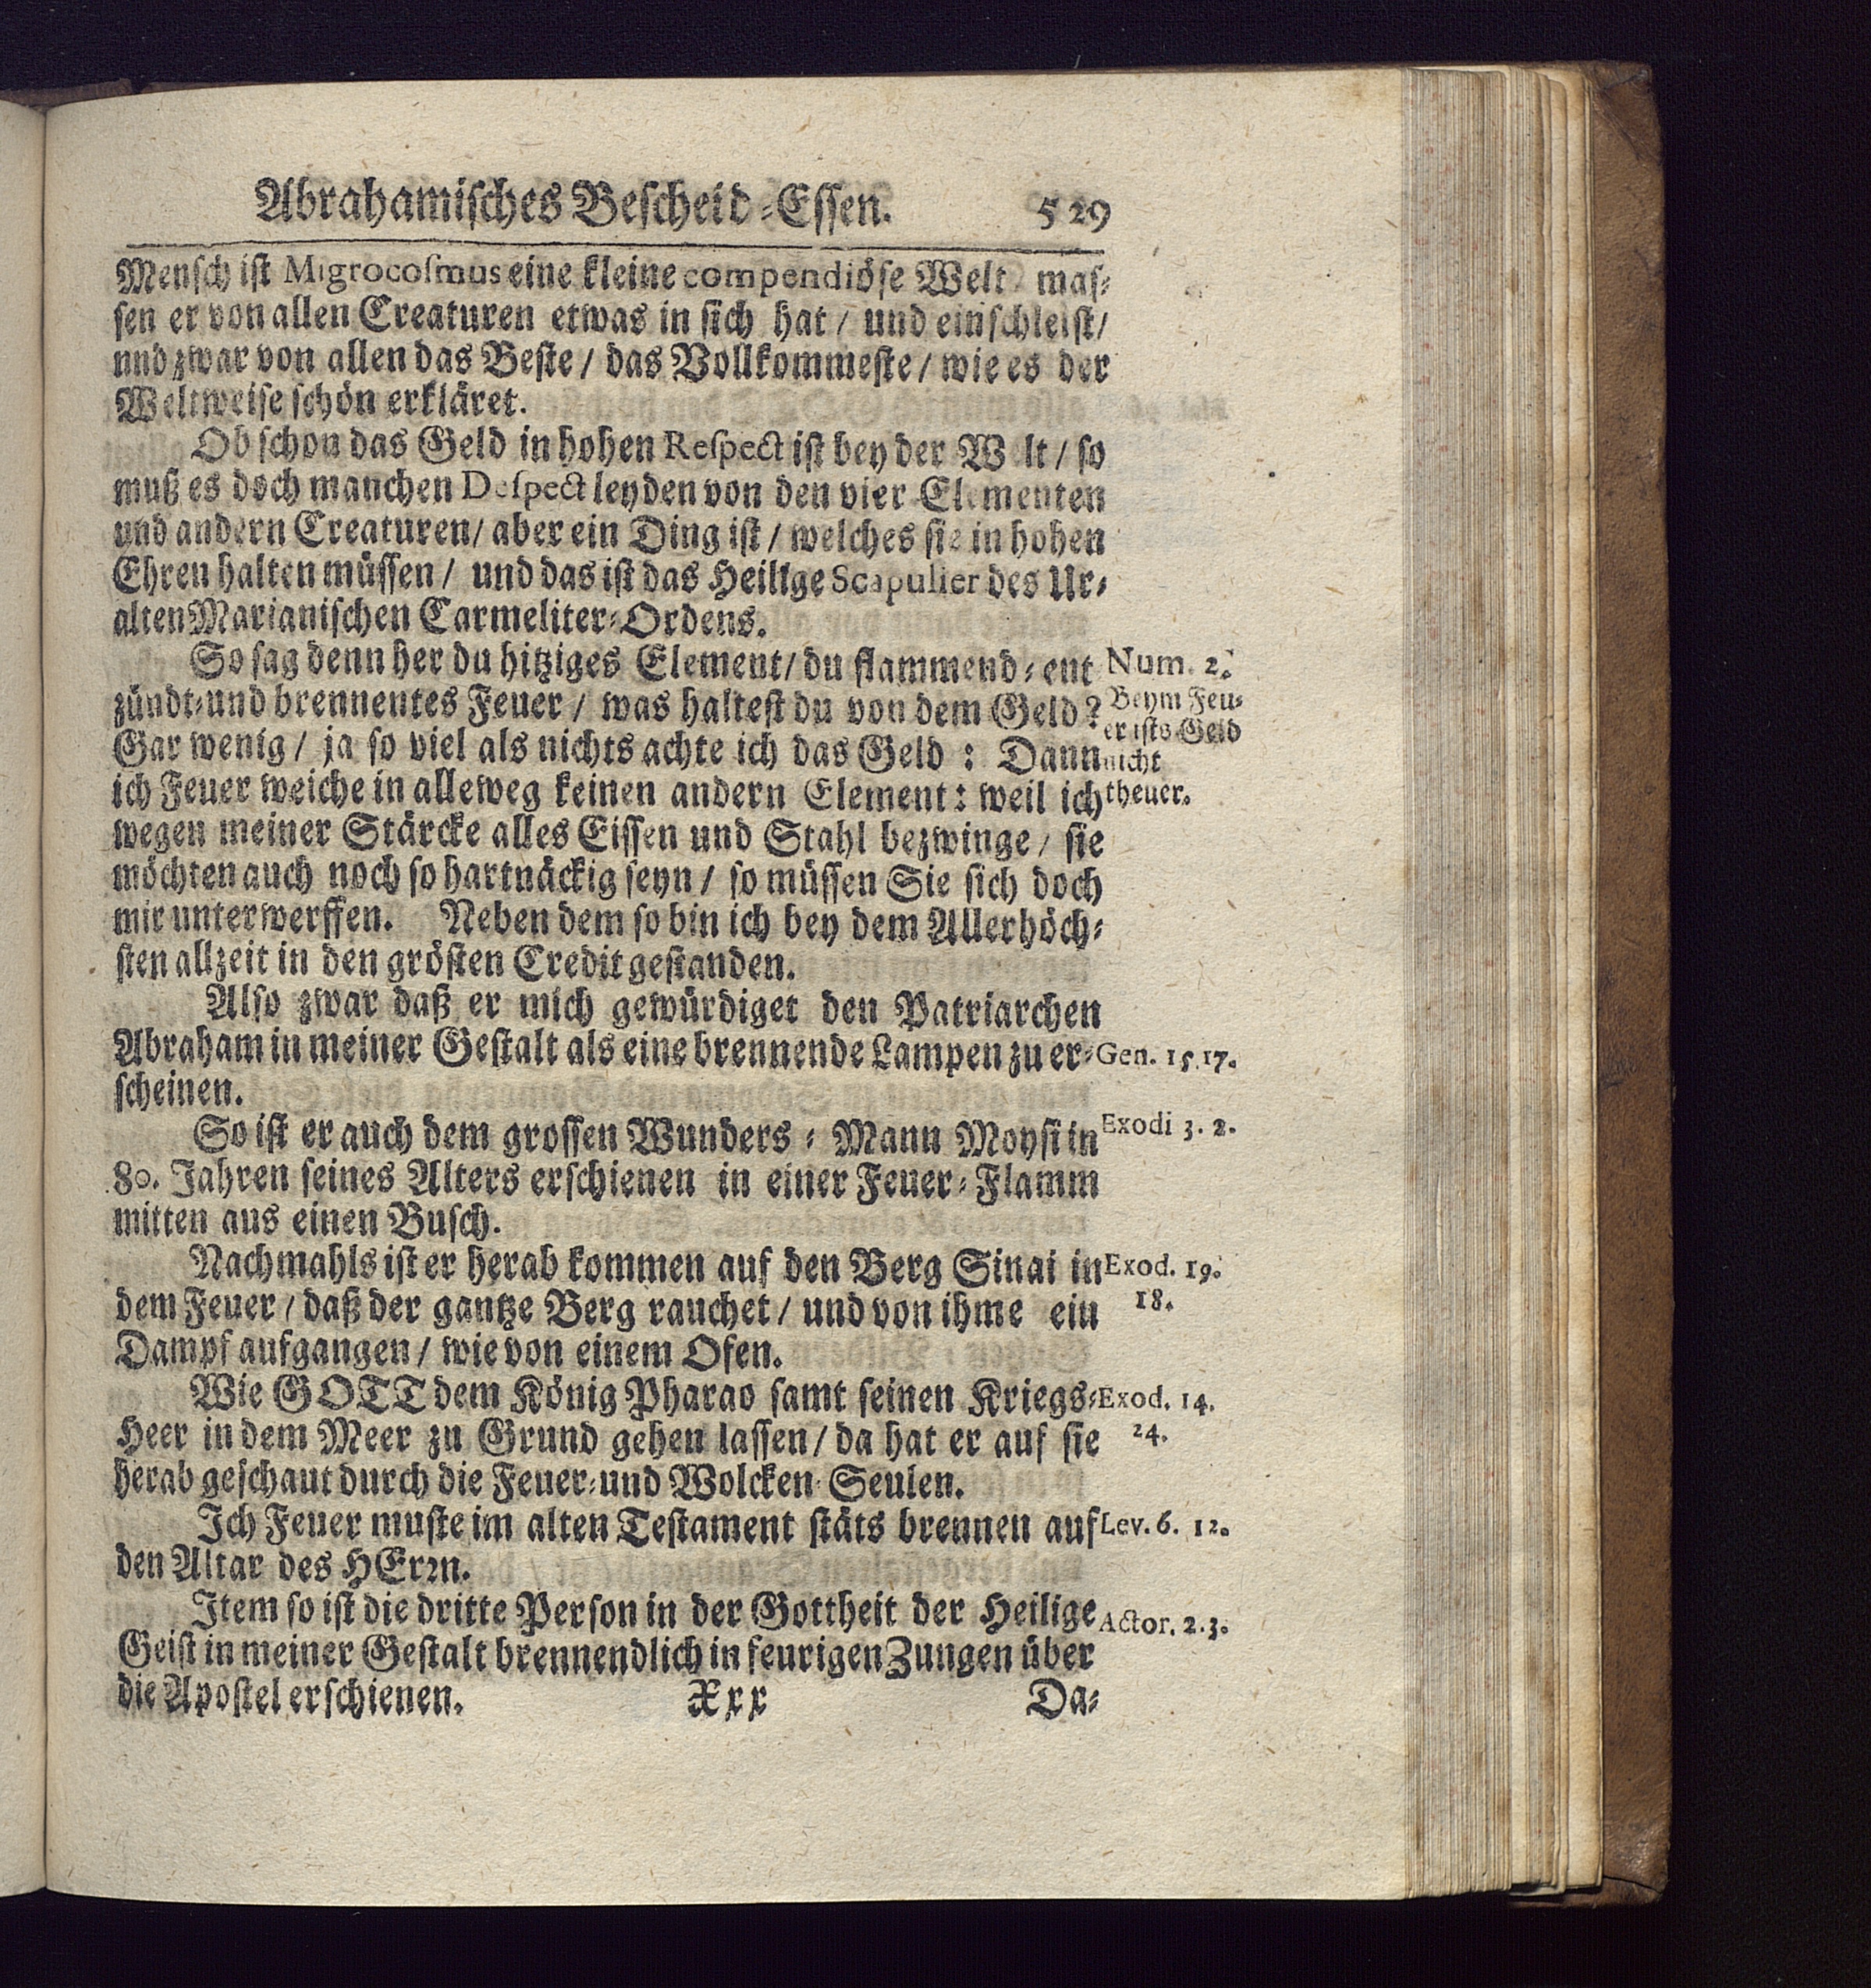 Abrahamisches Bescheid-Essen. 529
Mensch ist Migrocosmus eine kleine compendiöse Welt mas-
sen er von allen Creaturen etwas in sich hat / und einschleist /
und zwar von allen das Beste / das Vollkommeste / wie es der
Weltweise schön erkläret.
Ob schon das Geld in hohen Respect ist bey der W lt / so
muß es doch manchen Despect leyden von den vier Elementen
und andern Creaturen / aber ein Ding ist / welches sie in hohen
Ehren halten müssen / und das ist das Heilige Scapulier des Ur-
alten Marianischen Carmeliter-Ordens.
So sag denn her du hitziges Element / du flammend-ent
Num. 2.
zündt-und brennentes Feuer / was haltest du von dem Geld?
Beym Feu-
er ists Geld
Gar wenig / ja so viel als nichts achte ich das Geld: Dann
nicht
ich Feuer weiche in alleweg keinen andern Element: weil ich
theuer.
wegen meiner Stärcke alles Eissen und Stahl bezwinge / sie
möchten auch noch so hartnäckig seyn / so müssen Sie sich doch
mir unterwerffen. Neben dem so bin ich bey dem Allerhöch-
sten allzeit in den grösten Credit gestanden.
Also zwar daß er mich gewürdiget den Patriarchen
Abraham in meiner Gestalt als eine brennende Lampen zu er-
Gen. 15. 17.
scheinen.
So ist er auch dem grossen Wunders-Mann Moysi in
Exodi 3. 2.
80. Jahren seines Alters erschienen in einer Feuer-Flamm
mitten aus einen Busch.
Nachmahls ist er herab kommen auf den Berg Sinai in
Exod. 19.
dem Feuer / daß der gantze Berg rauchet / und von ihme ein
18.
Dampf aufgangen / wie von einem Ofen.
Wie GOTT dem König Pharao samt seinen Kriegs-
Exod. 14.
Heer in dem Meer zu Grund gehen lassen / da hat er auf sie
24.
herab geschaut durch die Feuer-und Wolcken-Seulen.
Ich Feuer muste im alten Testament stäts brennen auf
Lev. 6. 12.
den Altar des HErꝛn.
Item so ist die dritte Person in der Gottheit der Heilige
Actor. 2. 3.
Geist in meiner Gestalt brennendlich in feurigen Zungen über
die Apostel erschienen. Xxx Da-